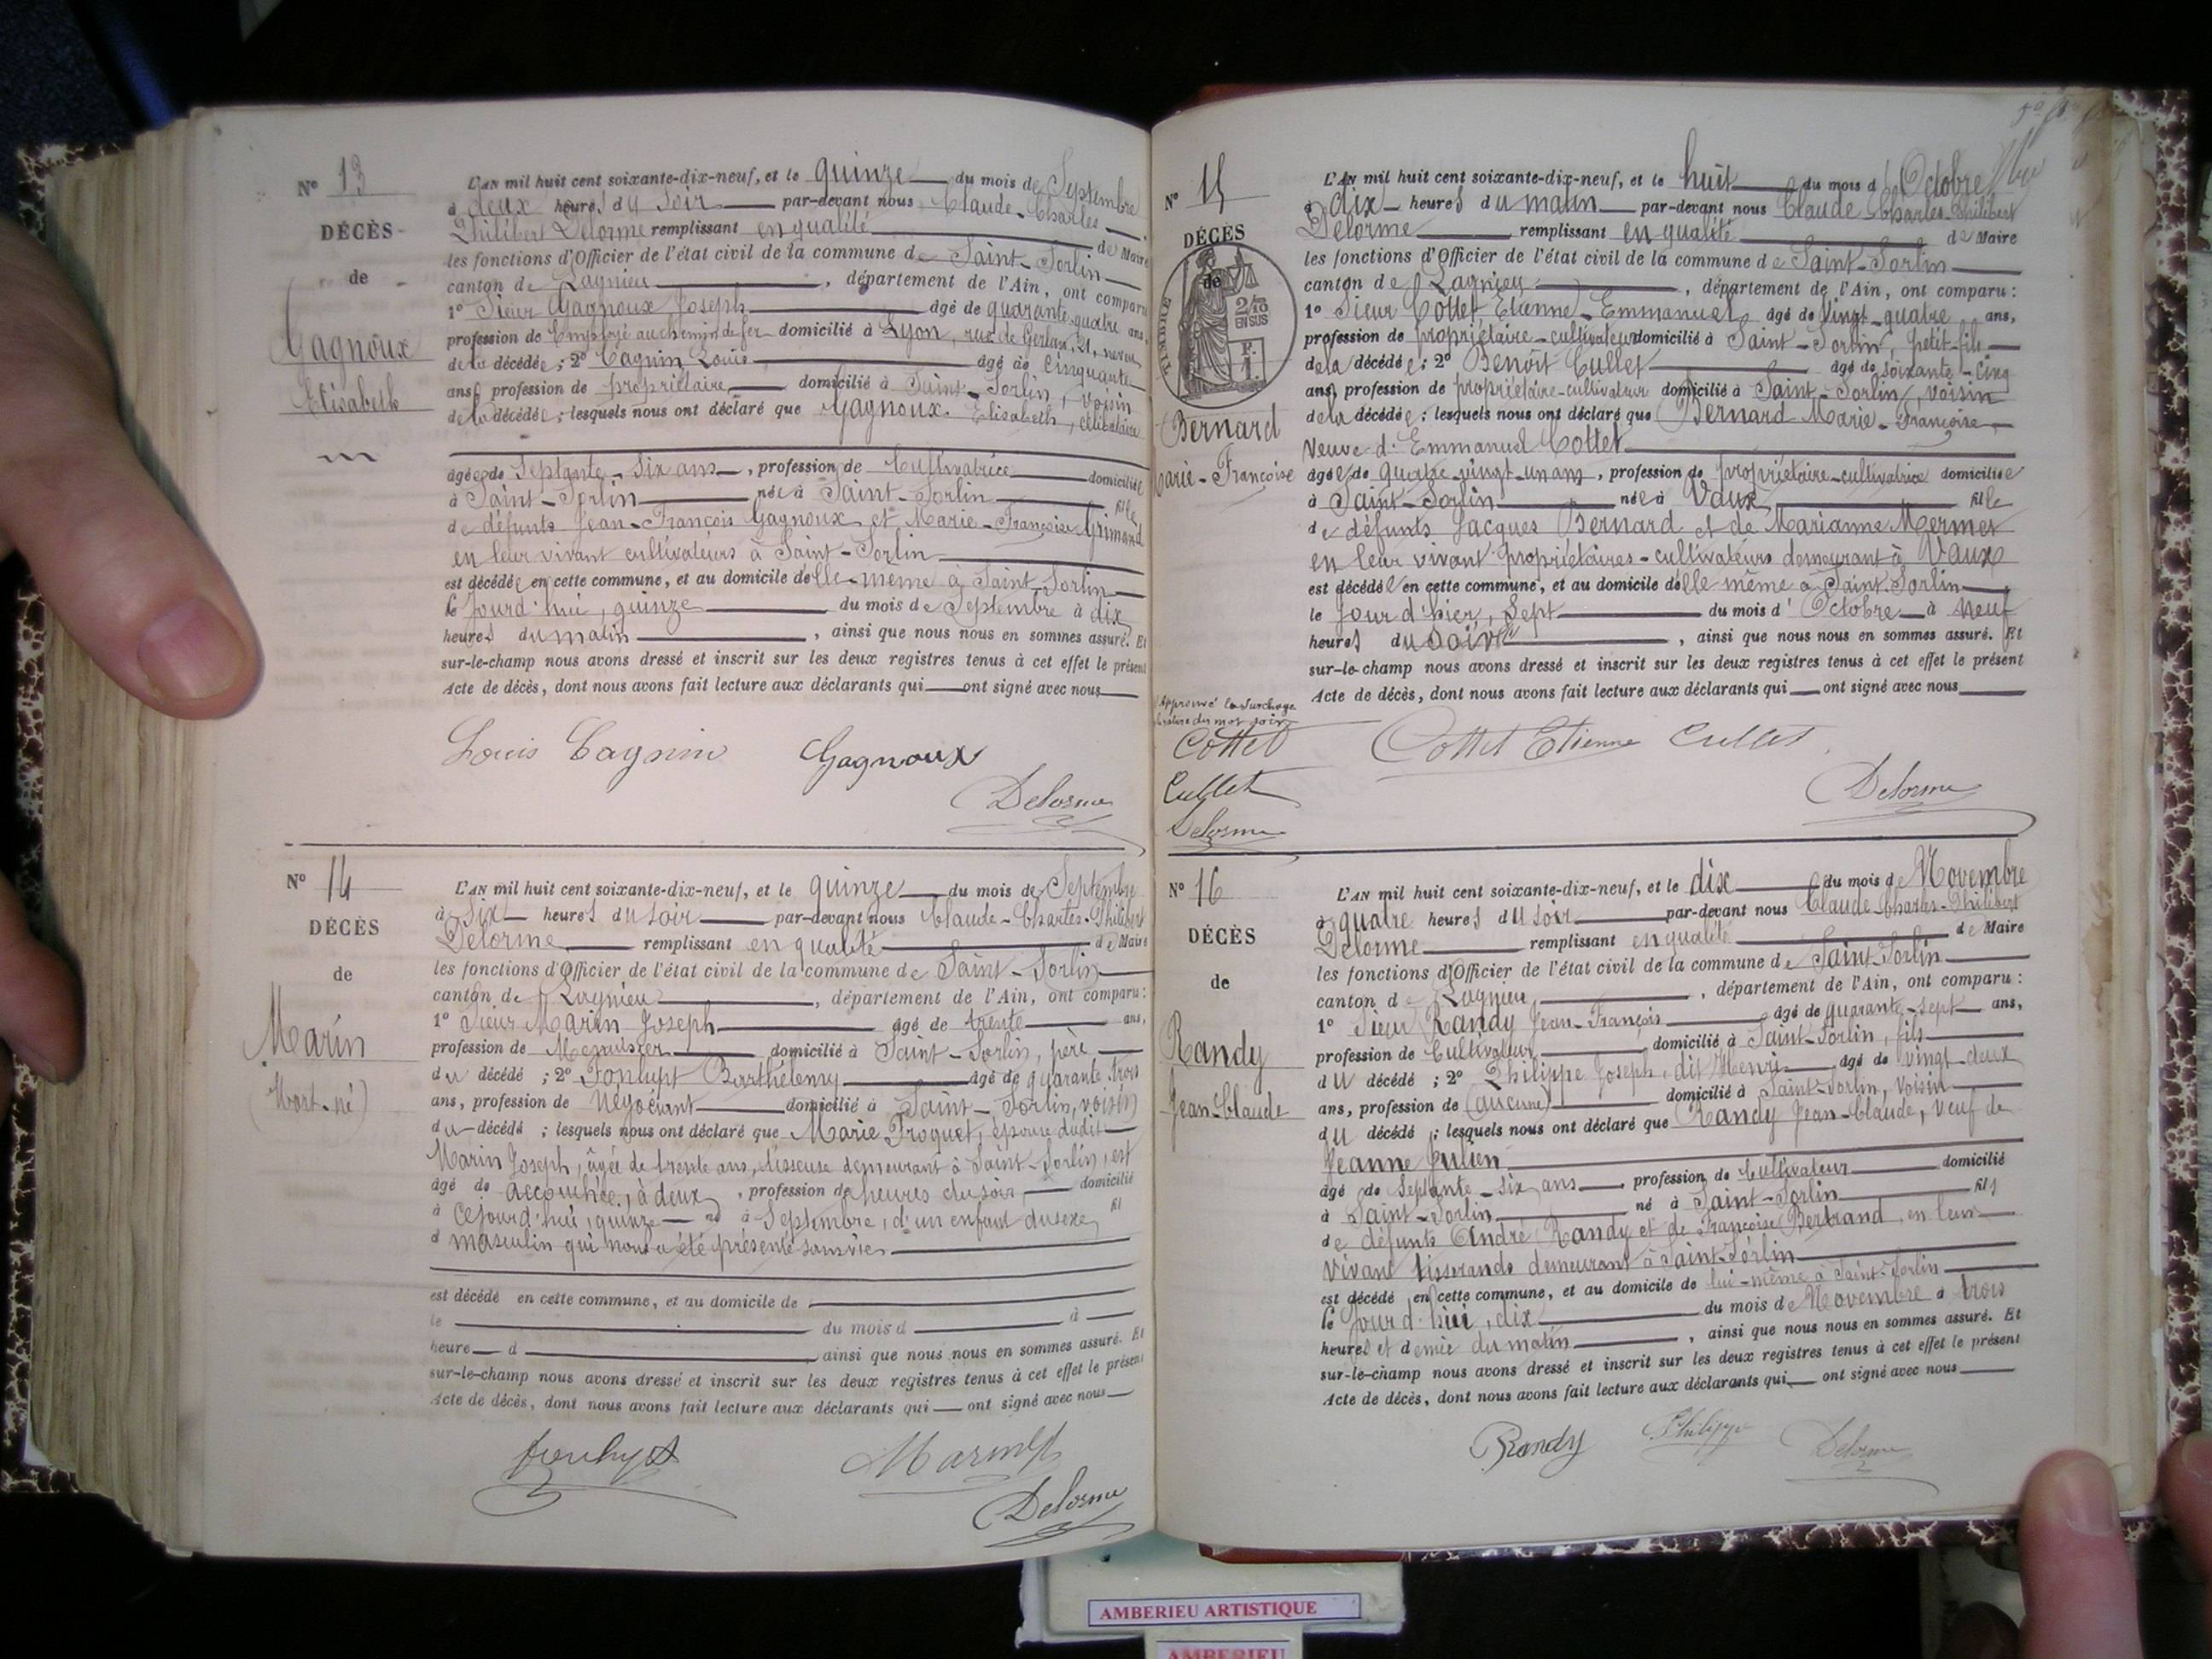 N° 13
DÉCÈS
de
Gagnoux
Elisabeth
L'AN mil huit cent soixante-dix-neuf, et le quinze du mois de Septembre
à deux heures du soir par-devant nous Claude-Charles
Philibert Delorme remplissant en qualité de Maire
les fonctions d'Officier de l'état civil de la commune de Saint-Sorlin
canton de Lagnieu, département de l'Ain, ont comparu
1° Sieur Gagnoux Joseph âgé de quarante-quatre ans,
profession de Employé au chemin de fer domicilié à Lyon, rue de Gerland, 21, neveu
de la décédée; 2° Cagnin Louis âgé de cinquante
ans, profession de propriétaire domicilié à Saint-Sorlin, voisin
de la décédée; lesquels nous ont déclaré que Gagnoux Elisabeth, célibataire
âgée de Septante-six ans, profession de Cultivatrice domiciliée
à Saint-Sorlin née à Saint-Sorlin fille
de défunts Jean-François Gagnoux et Marie-Françoise Grimand
en leur vivant cultivateurs à Saint-Sorlin
est décédée en cette commune, et au domicile d'elle-même à Saint-Sorlin
le jourd'hui, quinze du mois de Septembre à dix
heures du matin, ainsi que nous nous en sommes assuré. Et
sur-le-champ nous avons dressé et inscrit sur les deux registres tenus à cet effet le présent
Acte de décès, dont nous avons fait lecture aux déclarants qui ont signé avec nous
Louis Cagnin Gagnoux
Delorme
N° 14
DÉCÈS
de
Marin
(Mort-né)
L'AN mil huit cent soixante-dix-neuf, et le quinze du mois de Septembre
à six heures du soir par-devant nous Claude-Charles-Philibert
Delorme remplissant en qualité de Maire
les fonctions d'Officier de l'état civil de la commune de Saint-Sorlin
canton de Lagnieu, département de l'Ain, ont comparu:
1° Sieur Marin Joseph âgé de trente ans,
profession de Menuisier domicilié à Saint-Sorlin, père
du décédé; 2° Fontupt Barthélemy âgé de quarante trois
ans, profession de Négociant domicilié à Saint-Sorlin, voisin
du décédé; lesquels nous ont déclaré que Marie Troquet, épouse dudit
Marin Joseph, âgée de trente ans, tisseuse demeurant à Saint-Sorlin, est
âgé de accouchée, à deux, profession de heures du soir domicilié
à cejourd'hui, quinze né à Septembre, d'un enfant du sexe fil
d masculin qui nous a été présenté sans vie
est décédé en cette commune, et au domicile de
le du mois d à
heure d ainsi que nous nous en sommes assuré. Et
sur-le-champ nous avons dressé et inscrit sur les deux registres tenus à cet effet le présent
Acte de décès, dont nous avons fait lecture aux déclarants qui ont signé avec nous
Marin
Delorme
N° 15
DÉCÈS
de
TIMBRE
2/10
EN SUS
Bernard
Marie-Françoise
L'AN mil huit cent soixante-dix-neuf, et le huit du mois d'Octobre
à dix heures du matin par-devant nous Claude Charles-Philibert
Delorme remplissant en qualité de Maire
les fonctions d'Officier de l'état civil de la commune de Saint-Sorlin
canton de Lagnieu, département de l'Ain, ont comparu:
1° Sieur Cottet Etienne-Emmanuel âgé de vingt-quatre ans,
profession de propriétaire-cultivateur domicilié à Saint-Sorlin, petit-fils
de la décédée; 2° Benoît Cullet âgé de soixante-cinq
ans, profession de propriétaire-cultivateur domicilié à Saint-Sorlin, voisin
de la décédée; lesquels nous ont déclaré que Bernard Marie-Françoise,
Veuve d'Emmanuel Cottet
âgée de quatre-vingt-un ans, profession de propriétaire-cultivatrice domiciliée
à Saint-Sorlin née à Vaux fille
de défunts Jacques Bernard et de Marianne Mermet
en leur vivant propriétaires-cultivateurs demeurant à Vaux
est décédée en cette commune, et au domicile d'elle même à Saint-Sorlin
le jour d'hier, sept du mois d'Octobre à neuf
heures du soir, ainsi que nous nous en sommes assuré. Et
sur-le-champ nous avons dressé et inscrit sur les deux registres tenus à cet effet le présent
Acte de décès, dont nous avons fait lecture aux déclarants qui ont signé avec nous
Approuvé la surcharge
du mot soir
Cottet
Cullet
Delorme
Cottet Etienne Cullet
Delorme
N° 16
DÉCÈS
de
Randy
Jean-Claude
L'AN mil huit cent soixante-dix-neuf, et le dix du mois de Novembre
à quatre heures du soir par-devant nous Claude-Charles-Philibert
Delorme remplissant en qualité de Maire
les fonctions d'Officier de l'état civil de la commune de Saint-Sorlin
canton de Lagnieu, département de l'Ain, ont comparu:
1° Sieur Randy Jean-François âgé de quarante-sept ans,
profession de Cultivateur domicilié à Saint-Sorlin, fils
du décédé; 2° Philippe Joseph, dit Henri âgé de vingt-deux
ans, profession de (aucune) domicilié à Saint-Sorlin, voisin
du décédé; lesquels nous ont déclaré que Randy Jean-Claude, veuf de
Jeanne Julien
âgé de Septante-six ans, profession de Cultivateur domicilié
à Saint-Sorlin né à Saint-Sorlin fils
de défunts André Randy et de Françoise Bertrand, en leur
vivant tisserands demeurant à Saint-Sorlin
est décédé en cette commune, et au domicile de lui-même à Saint-Sorlin
le jourd'hui, dix du mois de Novembre à trois
heures et demie du matin, ainsi que nous nous en sommes assuré. Et
sur-le-champ nous avons dressé et inscrit sur les deux registres tenus à cet effet le présent
Acte de décès, dont nous avons fait lecture aux déclarants qui ont signé avec nous
Randy Philippe Delorme
AMBERIEU ARTISTIQUE
AMBERIEU